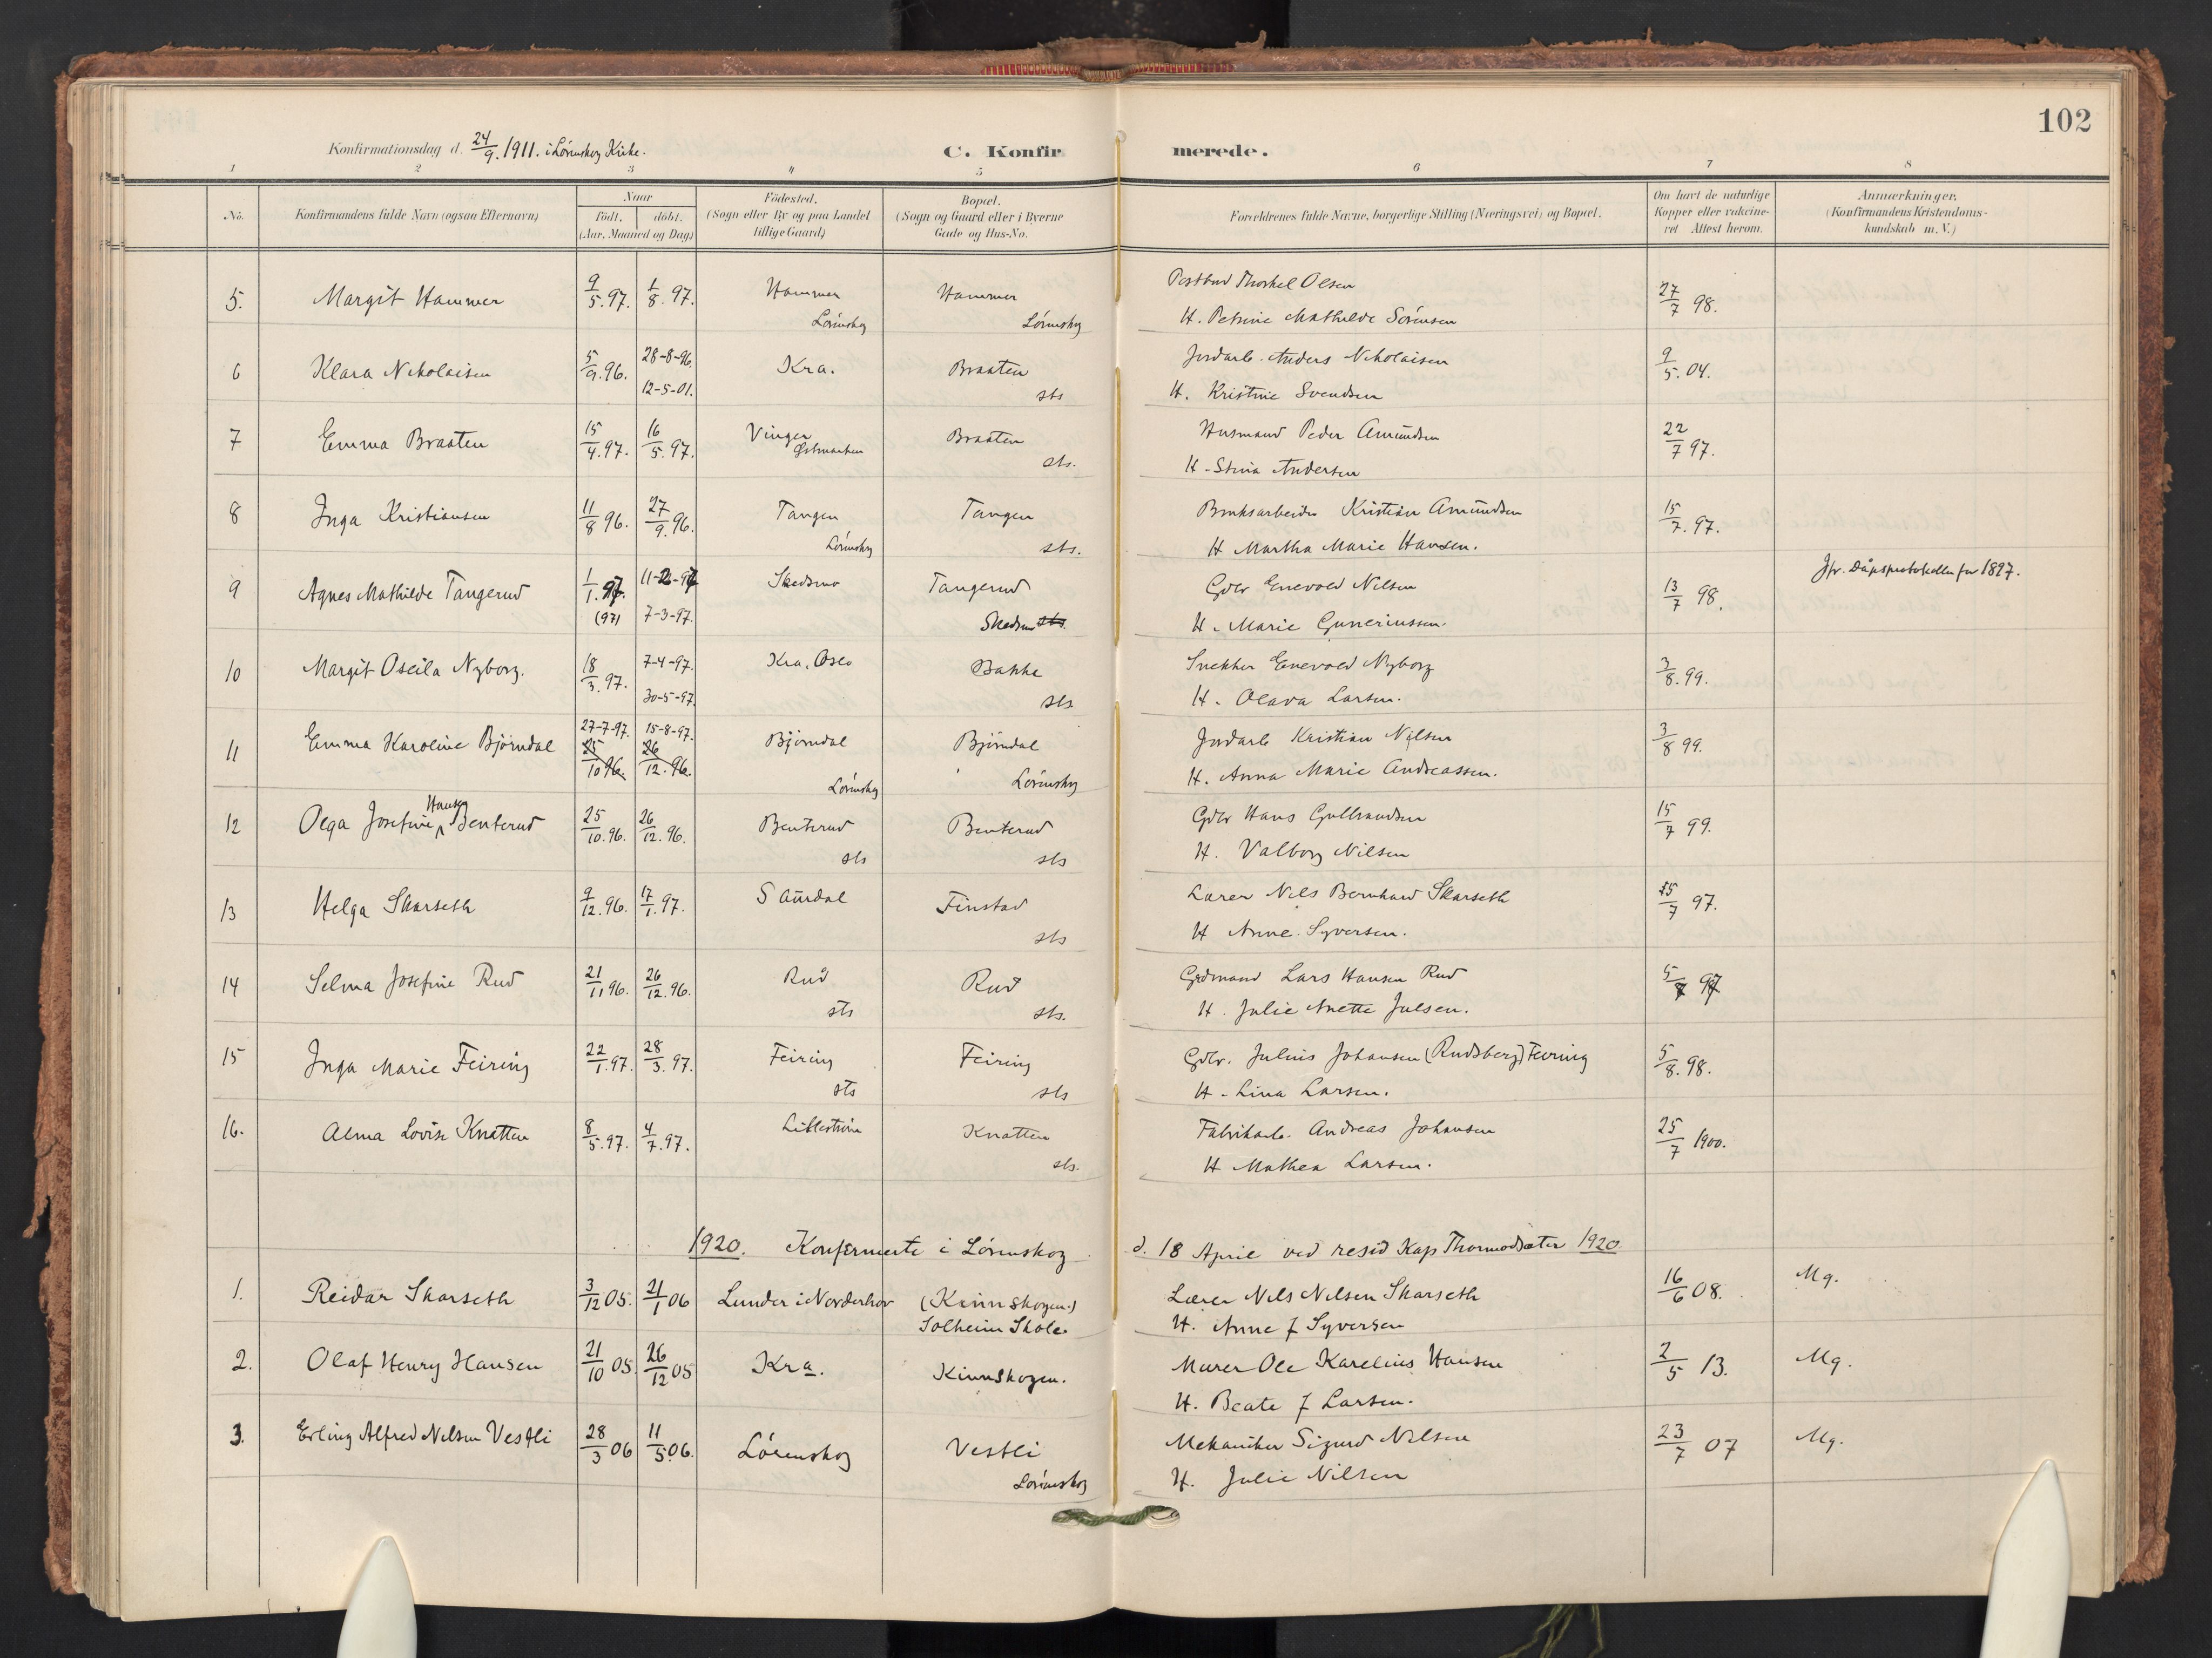 102
Konfirmationsdag d. 24/9. 1911. i Lørenskog Kirke.
C. Konfirmerede.
1 2 3 4 5 6 7 8
No.
Konfirmandens fulde Navn (ogsaa Efternavn)
Naar
födt. döbt.
(Aar, Maaned og Dag.)
Födested.
(Sogn eller By og paa Landet
tillige Gaard)
Bopæl.
(Sogn og Gaard eller i Byerne
Gade og Hus-No.
Forældrenes fulde Navne, borgerlige Stilling (Næringsvei) og Bopæl.
Om havt de naturlige
Kopper eller vakcine-
ret Attest herom.
Anmærkninger.
(Konfirmandens Kristendoms-
kundskab m. V.)
5. Margit Hammer 9/5. 97. 1/8. 97. Hammer Hammer Postbud Thorkel Olsen 27/7 98.
Lörenskog Lörenskog H. Petrine Mathilde Sörensen
6 Klara Nikolaisen 5/9. 96. 28-8-96. Kra. Braaten Jordarb. Anders Nikolaisen 9/5. 04.
12-5-01. sts H. Kristine Svendsen
7 Emma Braaten 15/4. 97. 16/5. 97. Vinger Braaten Husmand Peder Amundsen 22/7 97.
Østmarken sts. H. Stina Andersen
8 Inga Kristiansen 11/8 96. 27/9. 96. Tangen Tangen Bruksarbeider Kristian Amundsen 15/7. 97.
Lörenskog sts. H Martha Marie Hansen.
9 Agnes Mathilde Tangerud 1/1. 97. Skedsmo Tangerud Gdbr Enevold Nilsen 13/7 98. Jfr. Dåpsprotokollen for 1897.
(97) 7-3-97. Skedsmo sts. H. Marie Gunerinssen.
10 Margit Oseila Nyborg. 18/3. 97. 7-4-97. Kra. Oslo Bakke Snekker Enevold Nyborg 3/8. 99.
30-5-97. sts H. Olava Larsen.
11 Emma Karoline Björndal 27-7-97. 15-8-97. Björndal Björndal Jordarb Kristian Nilsen 3/8 99.
25/10 96. 26/12. 96. Lörenskog Lörenskog H. Anna Marie Andreassen.
12 Olga Josefine Hansen Benterud 25/10. 96. 26/12. 96. Benterud Benterud Gdbr Hans Gulbrandsen 15/7 99.
sts sts H. Valborg Nilsen
13 Helga Skarseth 9/12. 96. 17/1. 97. S Aurdal Finstad Lærer Nils Bernhard Skarseth 25/7 97.
sts H Anne Syversen.
14 Selma Josefine Rud 21/11 96. 26/12. 96. Rud Rud Grdmand Lars Hansen Rud 5/8 97
sts sts. H. Julie Anette Julsen.
15 Inga Marie Feiring 22/1. 97. 28/3. 97. Feiring Feiring Gdbr. Julius Johansen (Rudsberg) Feiring 5/8. 98.
sts sts H. Lina Larsen.
16. Alma Lovise Knatten 8/5. 97. 4/7. 97. Lilleström Knatten Fabrikarb. Andreas Johansen 25/7 1900.
sts. H Mathea Larsen.
1920. Konfirmerte i Lörenskog d. 18 April ved resid Kap Thormodsæter 1920.
1. Reidar Skarseth 3/12 05. 21/1 06 Lunder i Norderhov (Kinnskogen.) Lærer Nils Nilsen Skarseth 16/6 08. Mg.
Solheim Skole. H. Anne f Syversen
2. Olaf Henry Hansen 21/10 05. 26/12 05 Kra. Kinnskogen. Murer Ole Karelius Hansen 2/5 13. Mg.
H. Beate f Larsen.
3. Erling Alfred Nilsen Vestli 28/3 06 11/5. 06. Lörenskog Vestli Mekaniker Sigurd Nilsen 23/7 07 Mg.
Lörenskog H. Julie Nilsen